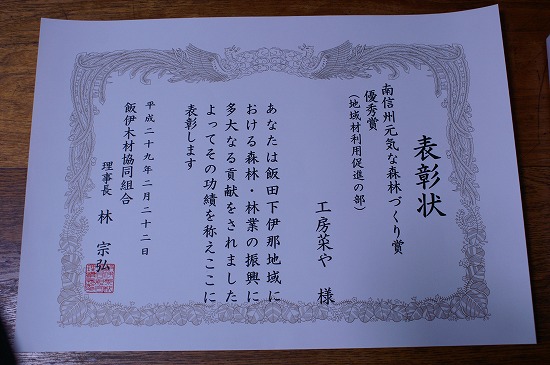 表彰状
南信州元気な森林づくり賞
優秀賞
（地域材利用促進の部）
工房菜や 様
あなたは飯田下伊那地域に
おける森林・林業の振興に
多大なる貢献をされました
よってその功績を称えここに
表彰します
平成二十九年二月二十二日
飯伊木材協同組合
理事長 林 宗弘